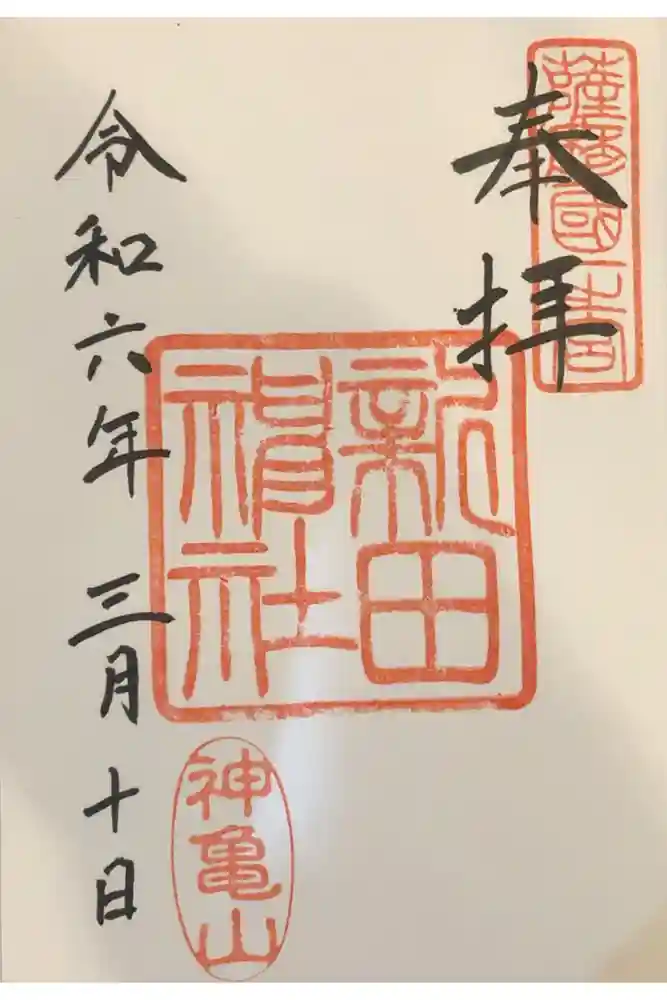 薩摩國一宮
奉拝
新田
神社
令和六年三月十日
神亀山